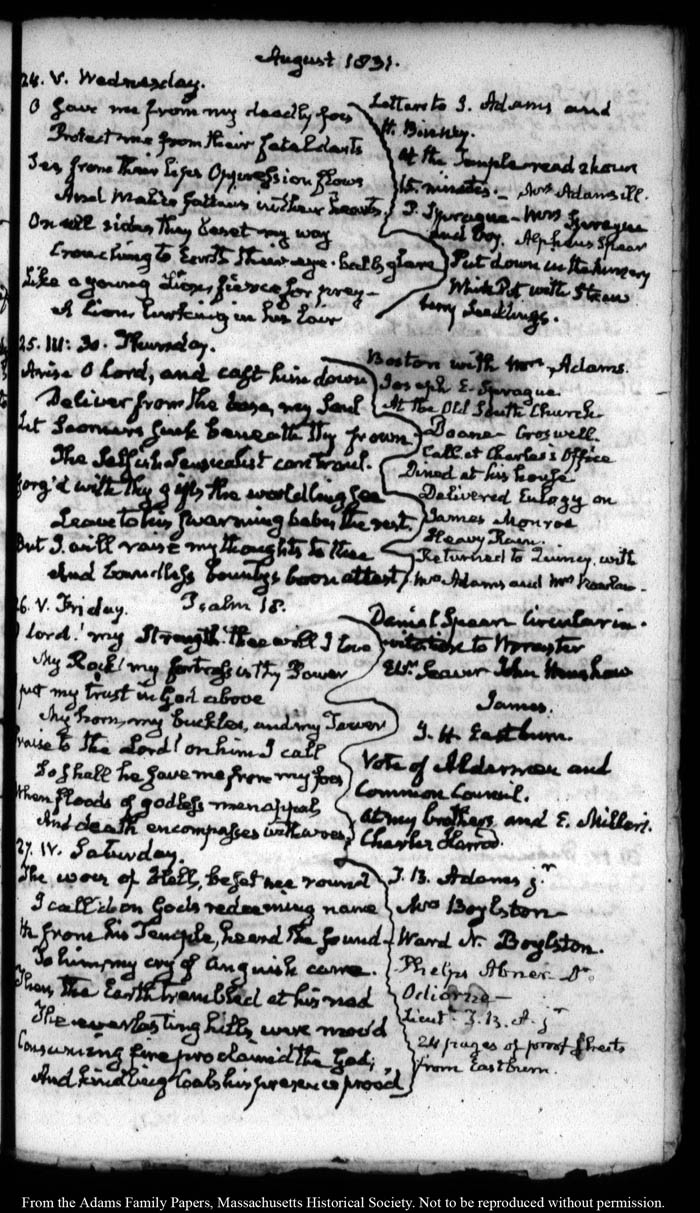 August 1831.
24. V. Wednesday.
O save me from my deadly foes
Protect me from their fatal darts
See from their lips Oppression flows
And Malice fattens in their hearts
On all sides they beset my way
Crouching to Earth their eye-balls glare
Like a young Lion, fierce for prey—
A Lion lurking in his lair
Letters to I. Adams and
H. Binney.
At the Temple read 2 hours
15. minutes.— Mrs Adams ill.
P. Sprague— Mrs Sprague
and boy. Alpheus Spear
Put down in the nursery
White Pot with Straw
berry Seedlings.
25. III: 30. Thursday.
Arise O Lord, and cast him down
Deliver from the base, my Soul
Let Scorners sink beneath thy frown
The Selfish Sensualist controul.
Gorg'd with thy gifts the worldling see
Leave to his swarming babes the rest,
But I will raise my thoughts to thee
And boundless bounty's boon attest
Boston with Mrs Adams.
Joseph E. Sprague.
At the Old South Church
Doane— Croswell.
Call at Charles's Office
Dined at his house
Delivered Eulogy on
James Monroe
Heavy Rain.
Returned to Quincy with
Mrs Adams and Mrs
26. V. Friday. Psalm 18.
O Lord! my Strength! thee will I love
My Rock! my fortress is thy Power
I put my trust in God above
My horn, my buckler, and my Tower
Praise to the Lord! on him I call
So shall he save me from my foes
When floods of godless men appal
And death encompasses with woes,
Daniel Spear Circular in.
vitation to Worcester
Seaver John
James.
J. H. Eastburn.
Vote of Aldermen and
Common Council.
At my brothers and E. Miller's.
Charles Harrod.
27. IV. Saturday.
The woes of Hell, beset me round
I call'd on Gods redeeming name
He from his Temple, heard the sound—
To him, my cry of anguish came.
Then, the Earth trembled at his nod
The everlasting hills, were mov'd
Consuming fire proclaim'd the God;
And kindling Coals his presence prov'd,
T. B. Adams jr
Mrs Boylston—
Ward N. Boylston.
Phelps Abner— Dr.
Odiorne—
Lieutt. T. B. A. jr
24 pages of proof sheets
from Eastburn.
From the Adams Family Papers, Massachusetts Historical Society. Not to be reproduced without permission.